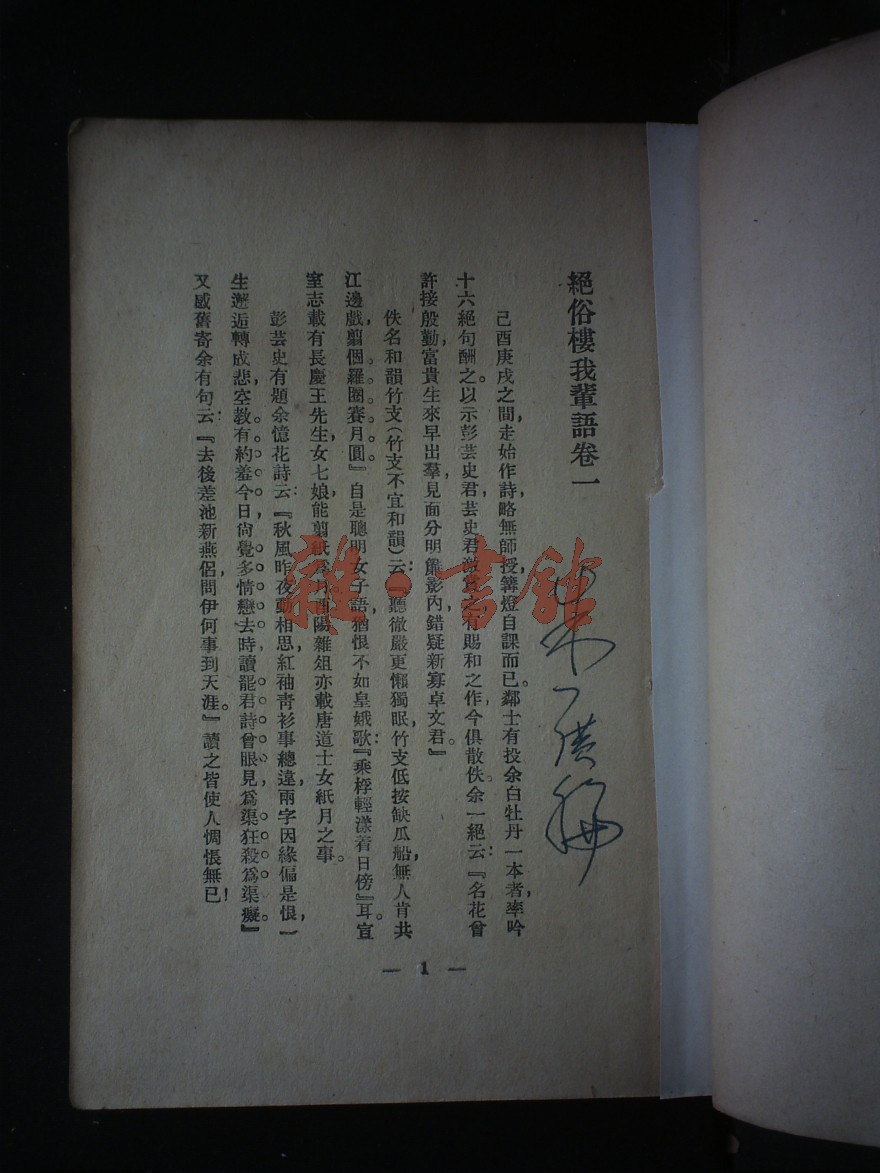 絕俗樓我輩語卷一
己酉庚戌之間，走始作詩，略無師授，篝燈自課而已。鄰士有投余白牡丹一本者，率吟
十六絕句酬之。以示彭芸史君，芸史君激賞之，有賜和之作，今俱散佚。余一絕云：『名花曾
許接殷勤，富貴生來早出羣，見面分明簾影內，錯疑新寡卓文君。』
佚名和韻竹支（竹支不宜和韻）云：聽徹嚴更懶獨眠，竹支低按缺瓜船，無人肯共
江邊戲，剪個羅圈賽月圓。』自是聰明女子語，猶恨不如皇娥歌：『乘桴輕漾着日傍』耳。宣
室志載有長慶王先生女七娘，能剪紙爲月，酉陽雜俎亦載唐道士女紙月之事。
彭芸史有題余憶花詩云：『秋風昨夜動相思，紅袖靑衫事總違，兩字因緣偏是恨，一
生邂逅轉成悲，空教有約羞今日，尙覺多情戀去時，讀罷君詩曾眼見，爲渠狂殺爲渠癡。』
又感舊寄余有句云：『去後差池新燕侶，問伊何事到天涯。』讀之皆使人惆悵無已！
— 1 —
雜·書館